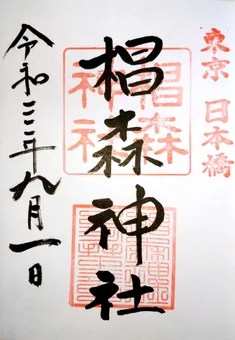 東京 日本橋
椙森神社
椙森
神社
令和三年九月一日